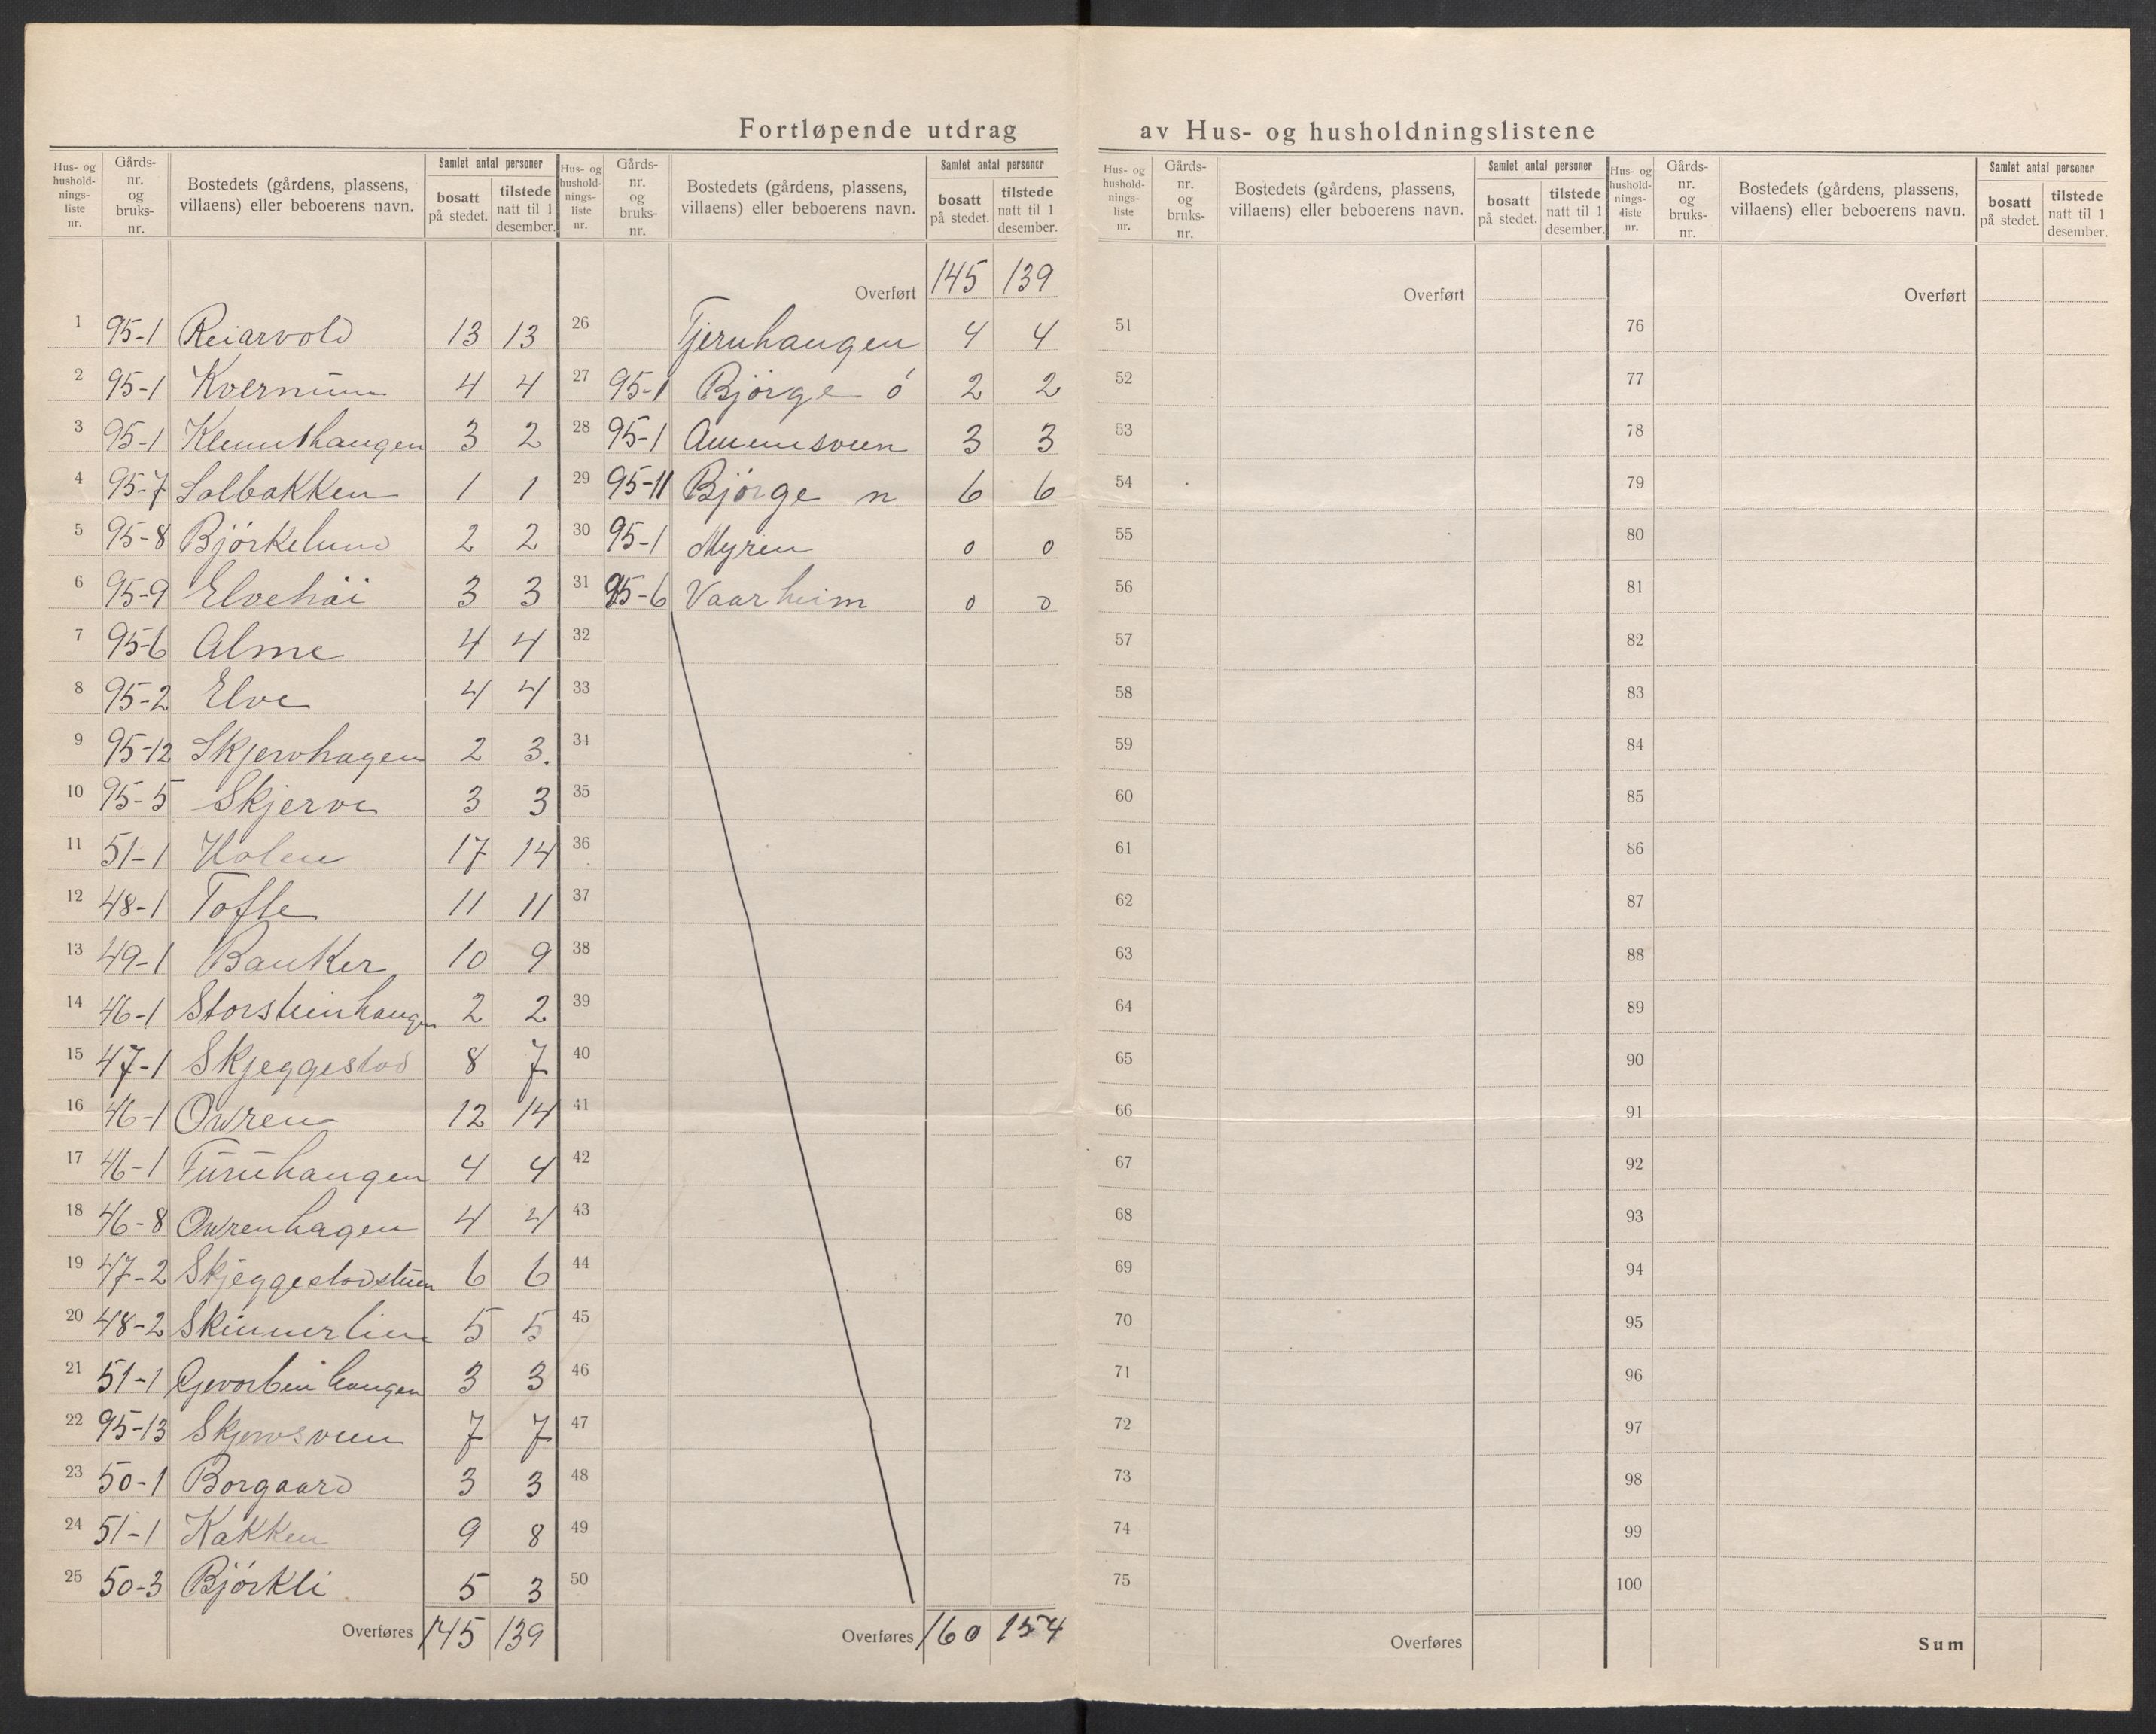 Fortløpende utdrag av Hus- og husholdningslistene
Hus- og hushold-nings-liste nr. | Gårds-nr. og bruks-nr. | Bostedets (gårdens, plassens, villaens) eller beboerens navn. | Samlet antal personer | bosatt på stedet. | tilstede natt til 1 desember.
1 95-1 Reiarvold 13 13
2 95-1 Kvernum 4 4
3 95-1 Klemmshaugen 3 2
4 95-7 Solbakken 1 1
5 95-8 Björkelund 2 2
6 95-9 Elvehöi 3 3
7 95-6 Alme 4 4
8 95-2 Elve 4 4
9 95-12 Skjervhagen 2 3.
10 95-5 Skjerve 3 3
11 51-1 Holen 17 14
12 48-1 Tofte 11 11
13 49-1 Bauker 10 9
14 46-1 Storsteinhaugen 2 2
15 47-1 Skjeggestad 8 7
16 46-1 Owren 12 14
17 46-1 Furuhaugen 4 4
18 46-8 Owrenhagen 4 4
19 47-2 Skjeggestadstuen 6 6
20 48-2 Skinnerlien 5 5
21 51-1 3 3
22 95-13 Skjervsveen 7 7
23 50-1 Borgaard 3 3
24 51-1 Kakken 9 8
25 50-3 Björkli 5 3
Overføres 145 139
Hus- og hushold-nings-liste nr. | Gårds-nr. og bruks-nr. | Bostedets (gårdens, plassens, villaens) eller beboerens navn. | Samlet antal personer | bosatt på stedet. | tilstede natt til 1 desember.
Overført 145 139
26 Tjernhaugen 4 4
27 95-1 Bjørge ö 2 2
28 95-1 3 3
29 95-11 Bjørge n 6 6
30 95-1 Myren 0 0
31 95-6 Vaarheim 0 0
32
33
34
35
36
37
38
39
40
41
42
43
44
45
46
47
48
49
50
Overføres 160 154
Hus- og hushold-nings-liste nr. | Gårds-nr. og bruks-nr. | Bostedets (gårdens, plassens, villaens) eller beboerens navn. | Samlet antal personer | bosatt på stedet. | tilstede natt til 1 desember.
Overført
51
52
53
54
55
56
57
58
59
60
61
62
63
64
65
66
67
68
69
70
71
72
73
74
75
Overføres
Hus- og hushold-nings-liste nr. | Gårds-nr. og bruks-nr. | Bostedets (gårdens, plassens, villaens) eller beboerens navn. | Samlet antal personer | bosatt på stedet. | tilstede natt til 1 desember.
Overført
76
77
78
79
80
81
82
83
84
85
86
87
88
89
90
91
92
93
94
95
96
97
98
99
100
Sum